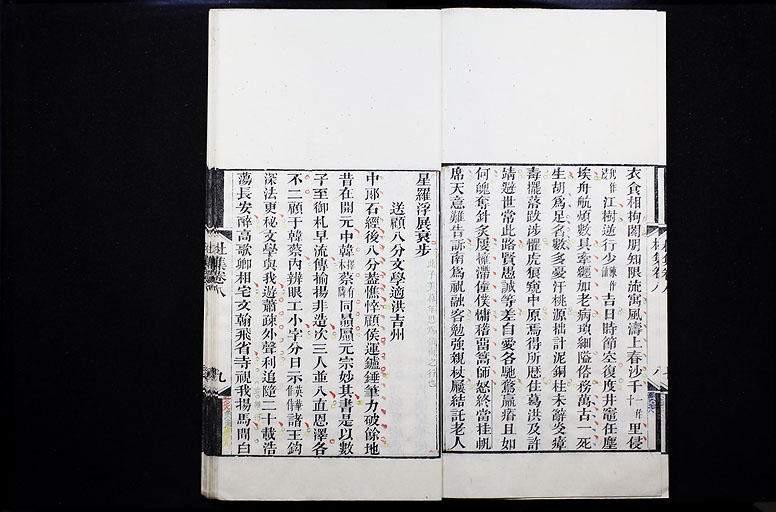 衣食相拘閡朋知限流寓風濤上春沙千一作十里侵
江樹逆行少吉日時節空復度井竈任塵
埃舟航煩數具牽纏加老病瑣細隘俗務萬古一死
生胡為足名數多憂汙桃源拙計泥銅柱未辭炎瘴
毒擺落跋涉懼虎狼窺中原焉得所歷住葛洪及許
靖避世常此路賢愚誠等差自愛各馳騖羸瘠且如
何魄奪針灸屢擁滯僮僕慵稽留篙師怒終當挂帆
席天意難告訴南為祝融客勉強親杖屨結託老人
星羅浮展衰步
送顧八分文學適洪吉州
中郎石經後八分蓋憔悴顧侯運鑪錘筆力破餘地
昔在開元中韓擇木蔡有鄰同贔屭元宗妙其書是以數
子至御札早流傳揄揚非造次三人並入直恩澤各
不二顧于韓蔡內辨眼工小字分日示諸王鈎
深法更秘文學與我遊蕭疎外聲利追隨二十載浩
蕩長安醉高歌卿相宅文翰飛省寺視我揚馬間白
杜集卷八
九